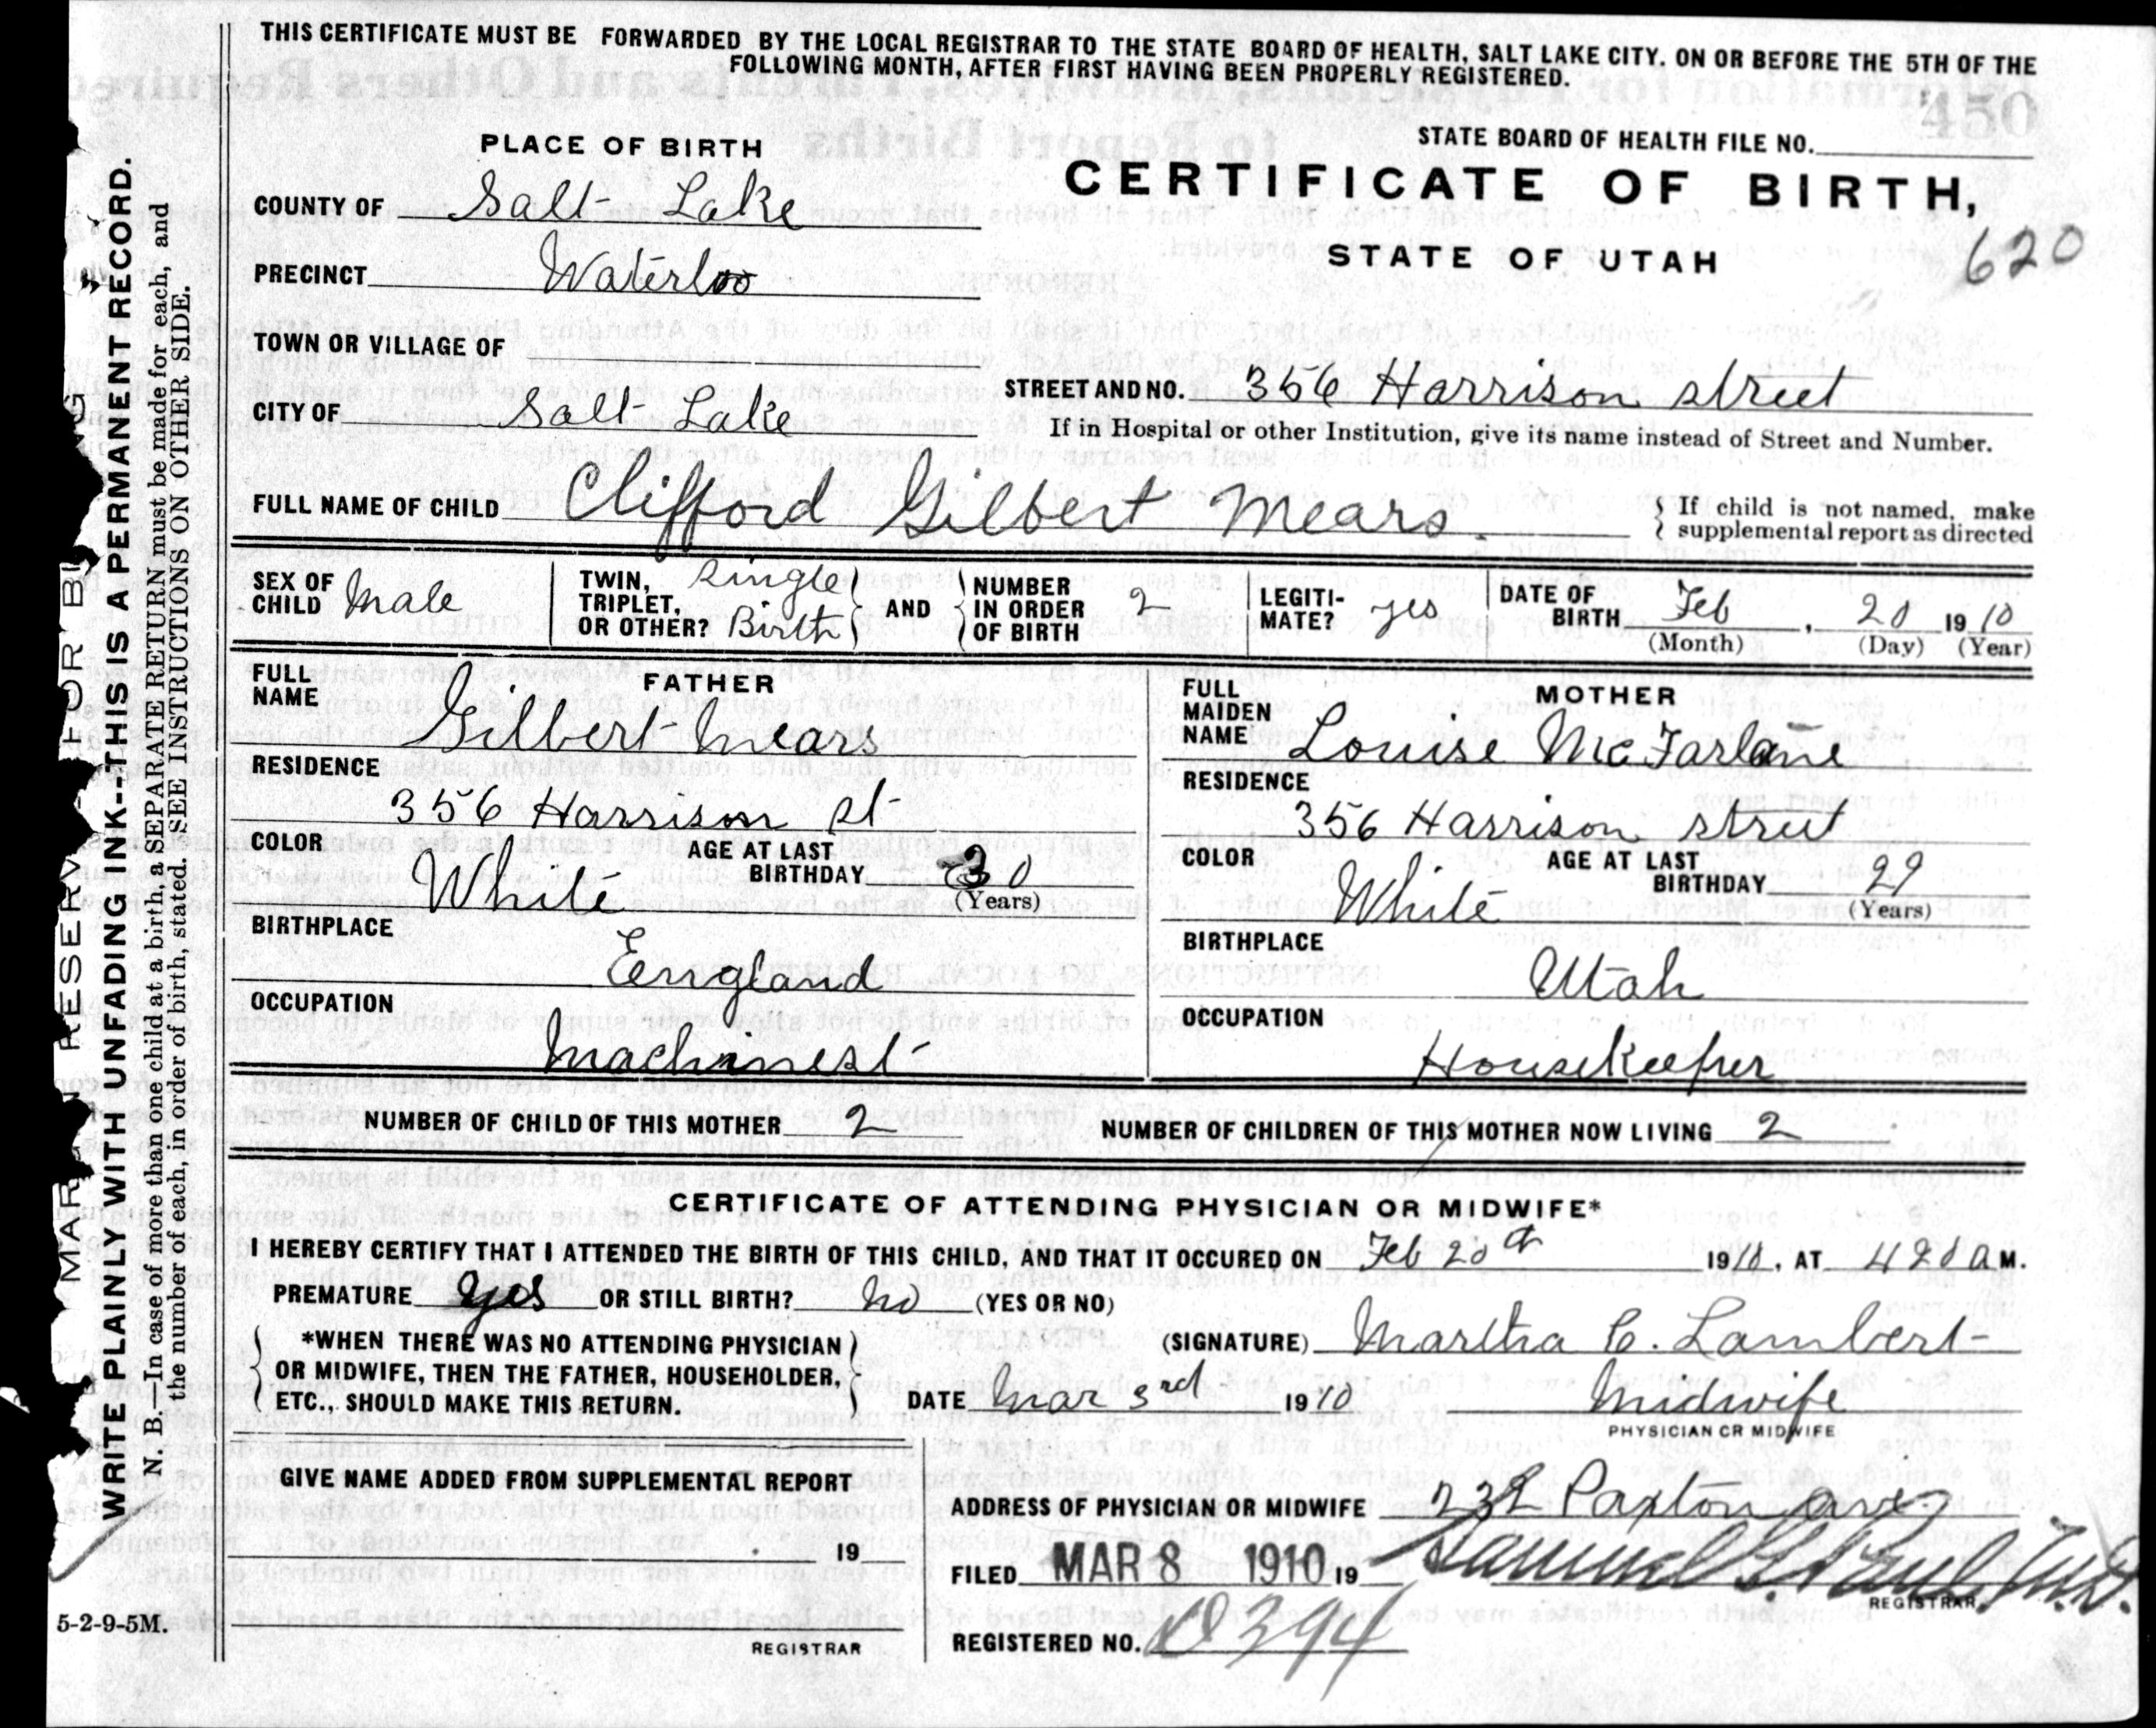 THIS CERTIFICATE MUST BE FORWARDED BY THE LOCAL REGISTRAR TO THE STATE BOARD OF HEALTH, SALT LAKE CITY. ON OR BEFORE THE 5TH OF THE
FOLLOWING MONTH, AFTER FIRST HAVING BEEN PROPERLY REGISTERED.
450
PLACE OF BIRTH
STATE BOARD OF HEALTH FILE NO.
CERTIFICATE OF BIRTH,
STATE OF UTAH
620
COUNTY OF Salt Lake
PRECINCT Waterloo
TOWN OR VILLAGE OF
CITY OF Salt Lake
STREET AND NO. 356 Harrison street
If in Hospital or other Institution, give its name instead of Street and Number.
FULL NAME OF CHILD Clifford Gilbert Mears.
If child is not named, make
supplemental report as directed
SEX OF CHILD Male
TWIN, TRIPLET, OR OTHER? Single Birth
AND NUMBER IN ORDER OF BIRTH 2
LEGITI-MATE? yes
DATE OF BIRTH Feb, 20 1910
(Month) (Day) (Year)
FATHER
FULL NAME Gilbert Mears
RESIDENCE
356 Harrison st
COLOR White
AGE AT LAST BIRTHDAY 30
(Years)
BIRTHPLACE
England
OCCUPATION
Machinest
MOTHER
FULL MAIDEN NAME Louise McFarlane
RESIDENCE
356 Harrison street
COLOR White
AGE AT LAST BIRTHDAY 29
(Years)
BIRTHPLACE
Utah
OCCUPATION
Housekeeper
NUMBER OF CHILD OF THIS MOTHER 2
NUMBER OF CHILDREN OF THIS MOTHER NOW LIVING 2
CERTIFICATE OF ATTENDING PHYSICIAN OR MIDWIFE*
I HEREBY CERTIFY THAT I ATTENDED THE BIRTH OF THIS CHILD, AND THAT IT OCCURED ON Feb 20th 1910, AT 420 a M.
PREMATURE yes OR STILL BIRTH? No (YES OR NO)
*WHEN THERE WAS NO ATTENDING PHYSICIAN
OR MIDWIFE, THEN THE FATHER, HOUSEHOLDER,
ETC., SHOULD MAKE THIS RETURN.
(SIGNATURE) Martha C. Lambert
DATE Mar 3rd 1910
Midwife
PHYSICIAN OR MIDWIFE
GIVE NAME ADDED FROM SUPPLEMENTAL REPORT
19
REGISTRAR
ADDRESS OF PHYSICIAN OR MIDWIFE 232 Paxton ave
FILED MAR 8 1910 19
Samuel G. Paul, M.D.
REGISTRAR
REGISTERED NO. D394
5-2-9-5M.
WRITE PLAINLY WITH UNFADING INK--THIS IS A PERMANENT RECORD.
N. B.—In case of more than one child at a birth, a SEPARATE RETURN must be made for each, and
the number of each, in order of birth, stated. SEE INSTRUCTIONS ON OTHER SIDE.